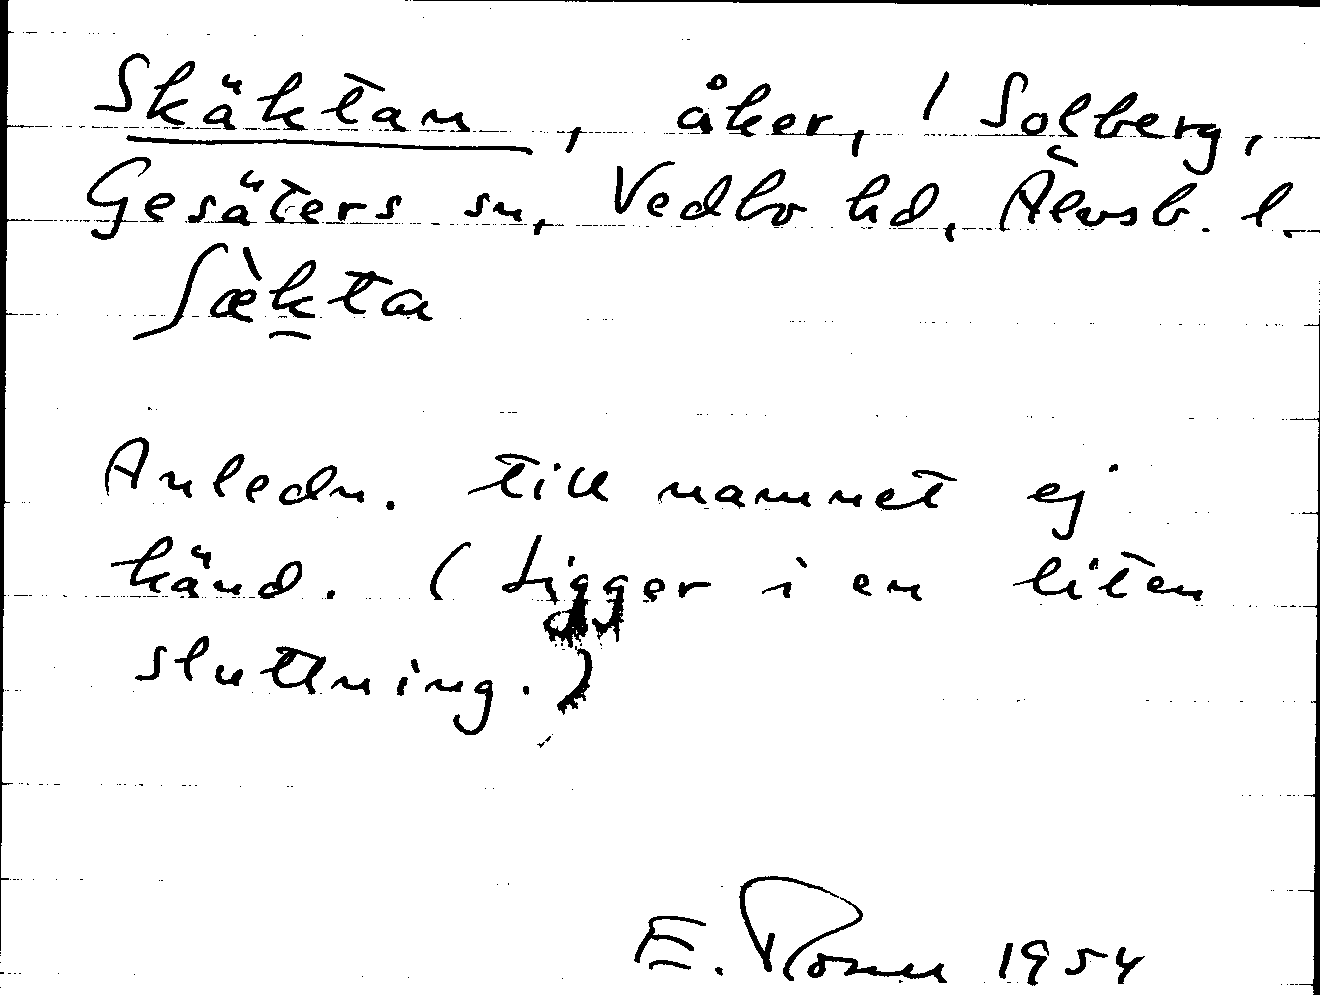 Skäktan, åker, / Solberg,
Gesäters sn, Vedbo hd, Älvsb. l.
ʃæ̀k̲ta
Anledn. till namnet ej
känd. (Ligger i en liten
sluttning.)
E. Rosen 1954